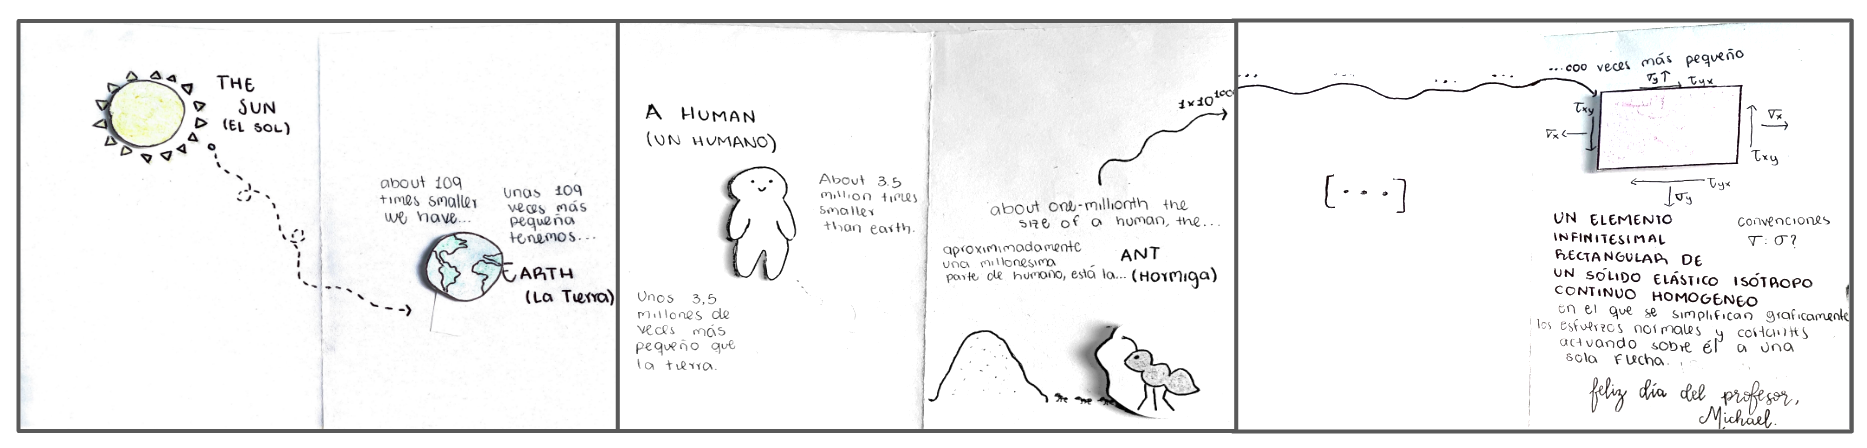 THE
SUN
(EL SOL)
about 109
times smaller
we have...
unas 109
veces más
pequeña
tenemos...
EARTH
(La Tierra)
A HUMAN
(UN HUMANO)
About 3.5
million times
smaller
than earth.
Unos 3,5
millones de
veces más
pequeño que
la tierra.
1x10^100
about one-millionth the
size of a human, the...
aproximadamente
una millonésima
parte de humano, está la...
ANT
(Hormiga)
...
...
...
...
...000 veces más pequeño
σy τyx
τxy
σx
σx
τxy
τyx
σy
[...]
UN ELEMENTO
INFINITESIMAL
RECTANGULAR DE
UN SÓLIDO ELÁSTICO ISÓTROPO
CONTINUO HOMOGENEO
en el que se simplifican graficamente
los esfuerzos normales y cortantes
actuando sobre él a una
sola flecha.
convenciones
∇: σ?
feliz día del profesor,
Michael.